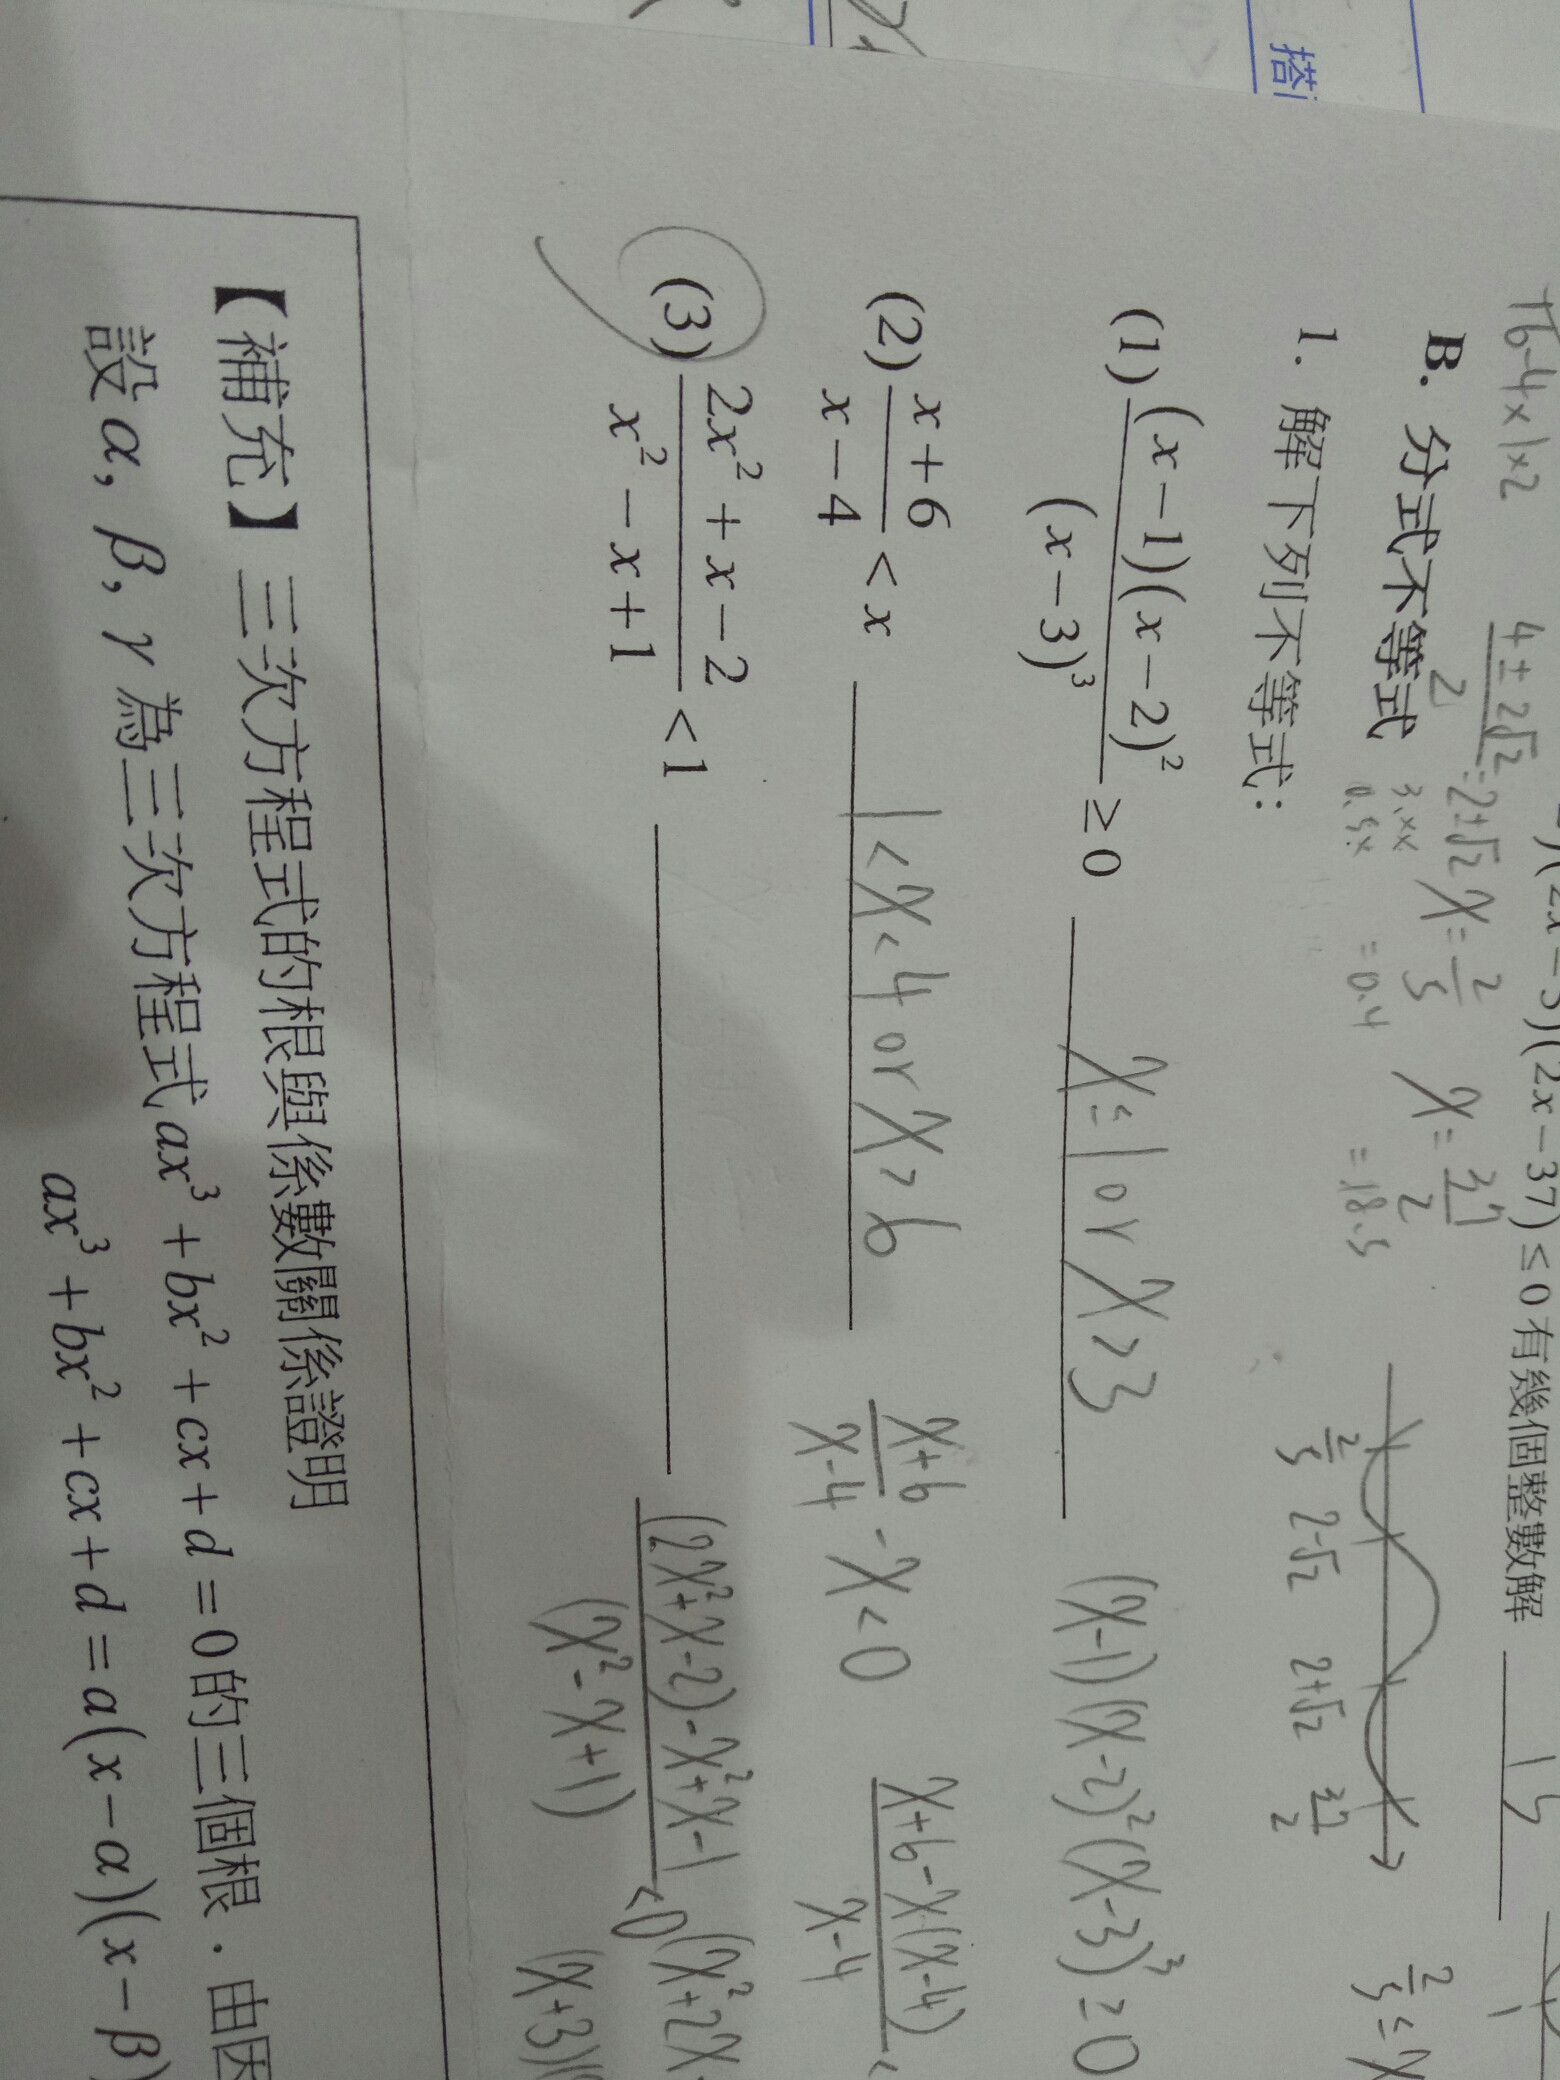 搭
(2x-37) ≤ 0 有幾個整數解 15
16-4×1×2
4±2√2
2
=2±√2
3.xx
0.5x
x=2/5
=0.4
x=37/2
=18.5
2/5 2-√2 2+√2 37/2
2/5 ≤ x
B. 分式不等式
1. 解下列不等式：
(1) (x-1)(x-2)²/(x-3)³ ≥ 0 x=1 or x>3 (x-1)(x-2)²(x-3)³ ≥ 0
(2) (x+6)/(x-4) < x 1<x<4 or x>6 (x+6)/(x-4) - x < 0 (x+6-x(x-4))/(x-4) <
(3) (2x²+x-2)/(x²-x+1) < 1 ((2x²+x-2)-x²+x-1)/(x²-x+1) <0 (x²+2x-
(x+3)(
【補充】三次方程式的根與係數關係證明
設 α, β, γ 為三次方程式 ax³+bx²+cx+d=0 的三個根，由因
ax³+bx²+cx+d=a(x-α)(x-β)